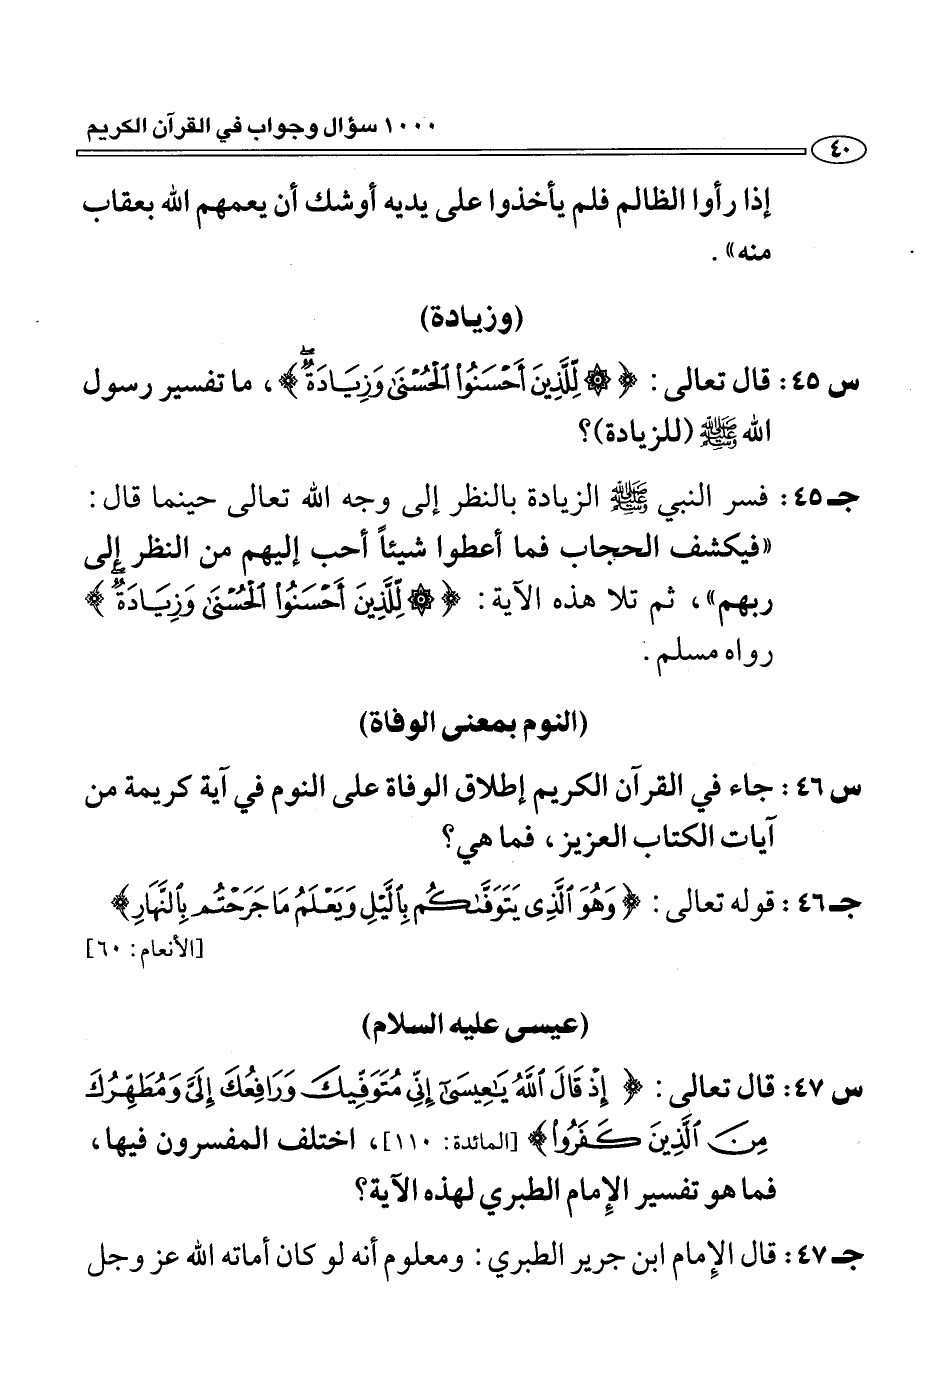 ١٠٠٠ سؤال وجواب في القرآن الكريم
٤٠
إذا رأوا الظالم فلم يأخذوا على يديه أوشك أن يعمهم الله بعقاب
منه» .
(وزيادة)
س ٤٥: قال تعالى: ﴿ ۞ لِّلَّذِينَ أَحْسَنُوا۟ ٱلْحُسْنَىٰ وَزِيَادَةٌ ۖ ﴾، ما تفسير رسول
الله ﷺ (للزيادة)؟
جـ٤٥: فسر النبي ﷺ الزيادة بالنظر إلى وجه الله تعالى حينما قال:
«فيكشف الحجاب فما أعطوا شيئاً أحب إليهم من النظر إلى
ربهم»، ثم تلا هذه الآية: ﴿ ۞ لِّلَّذِينَ أَحْسَنُوا۟ ٱلْحُسْنَىٰ وَزِيَادَةٌ ۖ ﴾
رواه مسلم.
(النوم بمعنى الوفاة)
س ٤٦: جاء في القرآن الكريم إطلاق الوفاة على النوم في آية كريمة من
آيات الكتاب العزيز، فما هي؟
جـ٤٦: قوله تعالى: ﴿ وَهُوَ ٱلَّذِى يَتَوَفَّىٰكُم بِٱلَّيْلِ وَيَعْلَمُ مَا جَرَحْتُم بِٱلنَّهَارِ ﴾
[الأنعام: ٦٠]
(عيسى عليه السلام)
س ٤٧: قال تعالى: ﴿ إِذْ قَالَ ٱللَّهُ يَـٰعِيسَىٰٓ إِنِّى مُتَوَفِّيكَ وَرَافِعُكَ إِلَىَّ وَمُطَهِّرُكَ
مِنَ ٱلَّذِينَ كَفَرُوا۟ ﴾ [المائدة: ١١٠]، اختلف المفسرون فيها،
فما هو تفسير الإمام الطبري لهذه الآية؟
جـ٤٧: قال الإمام ابن جرير الطبري: ومعلوم أنه لو كان أماته الله عز وجل